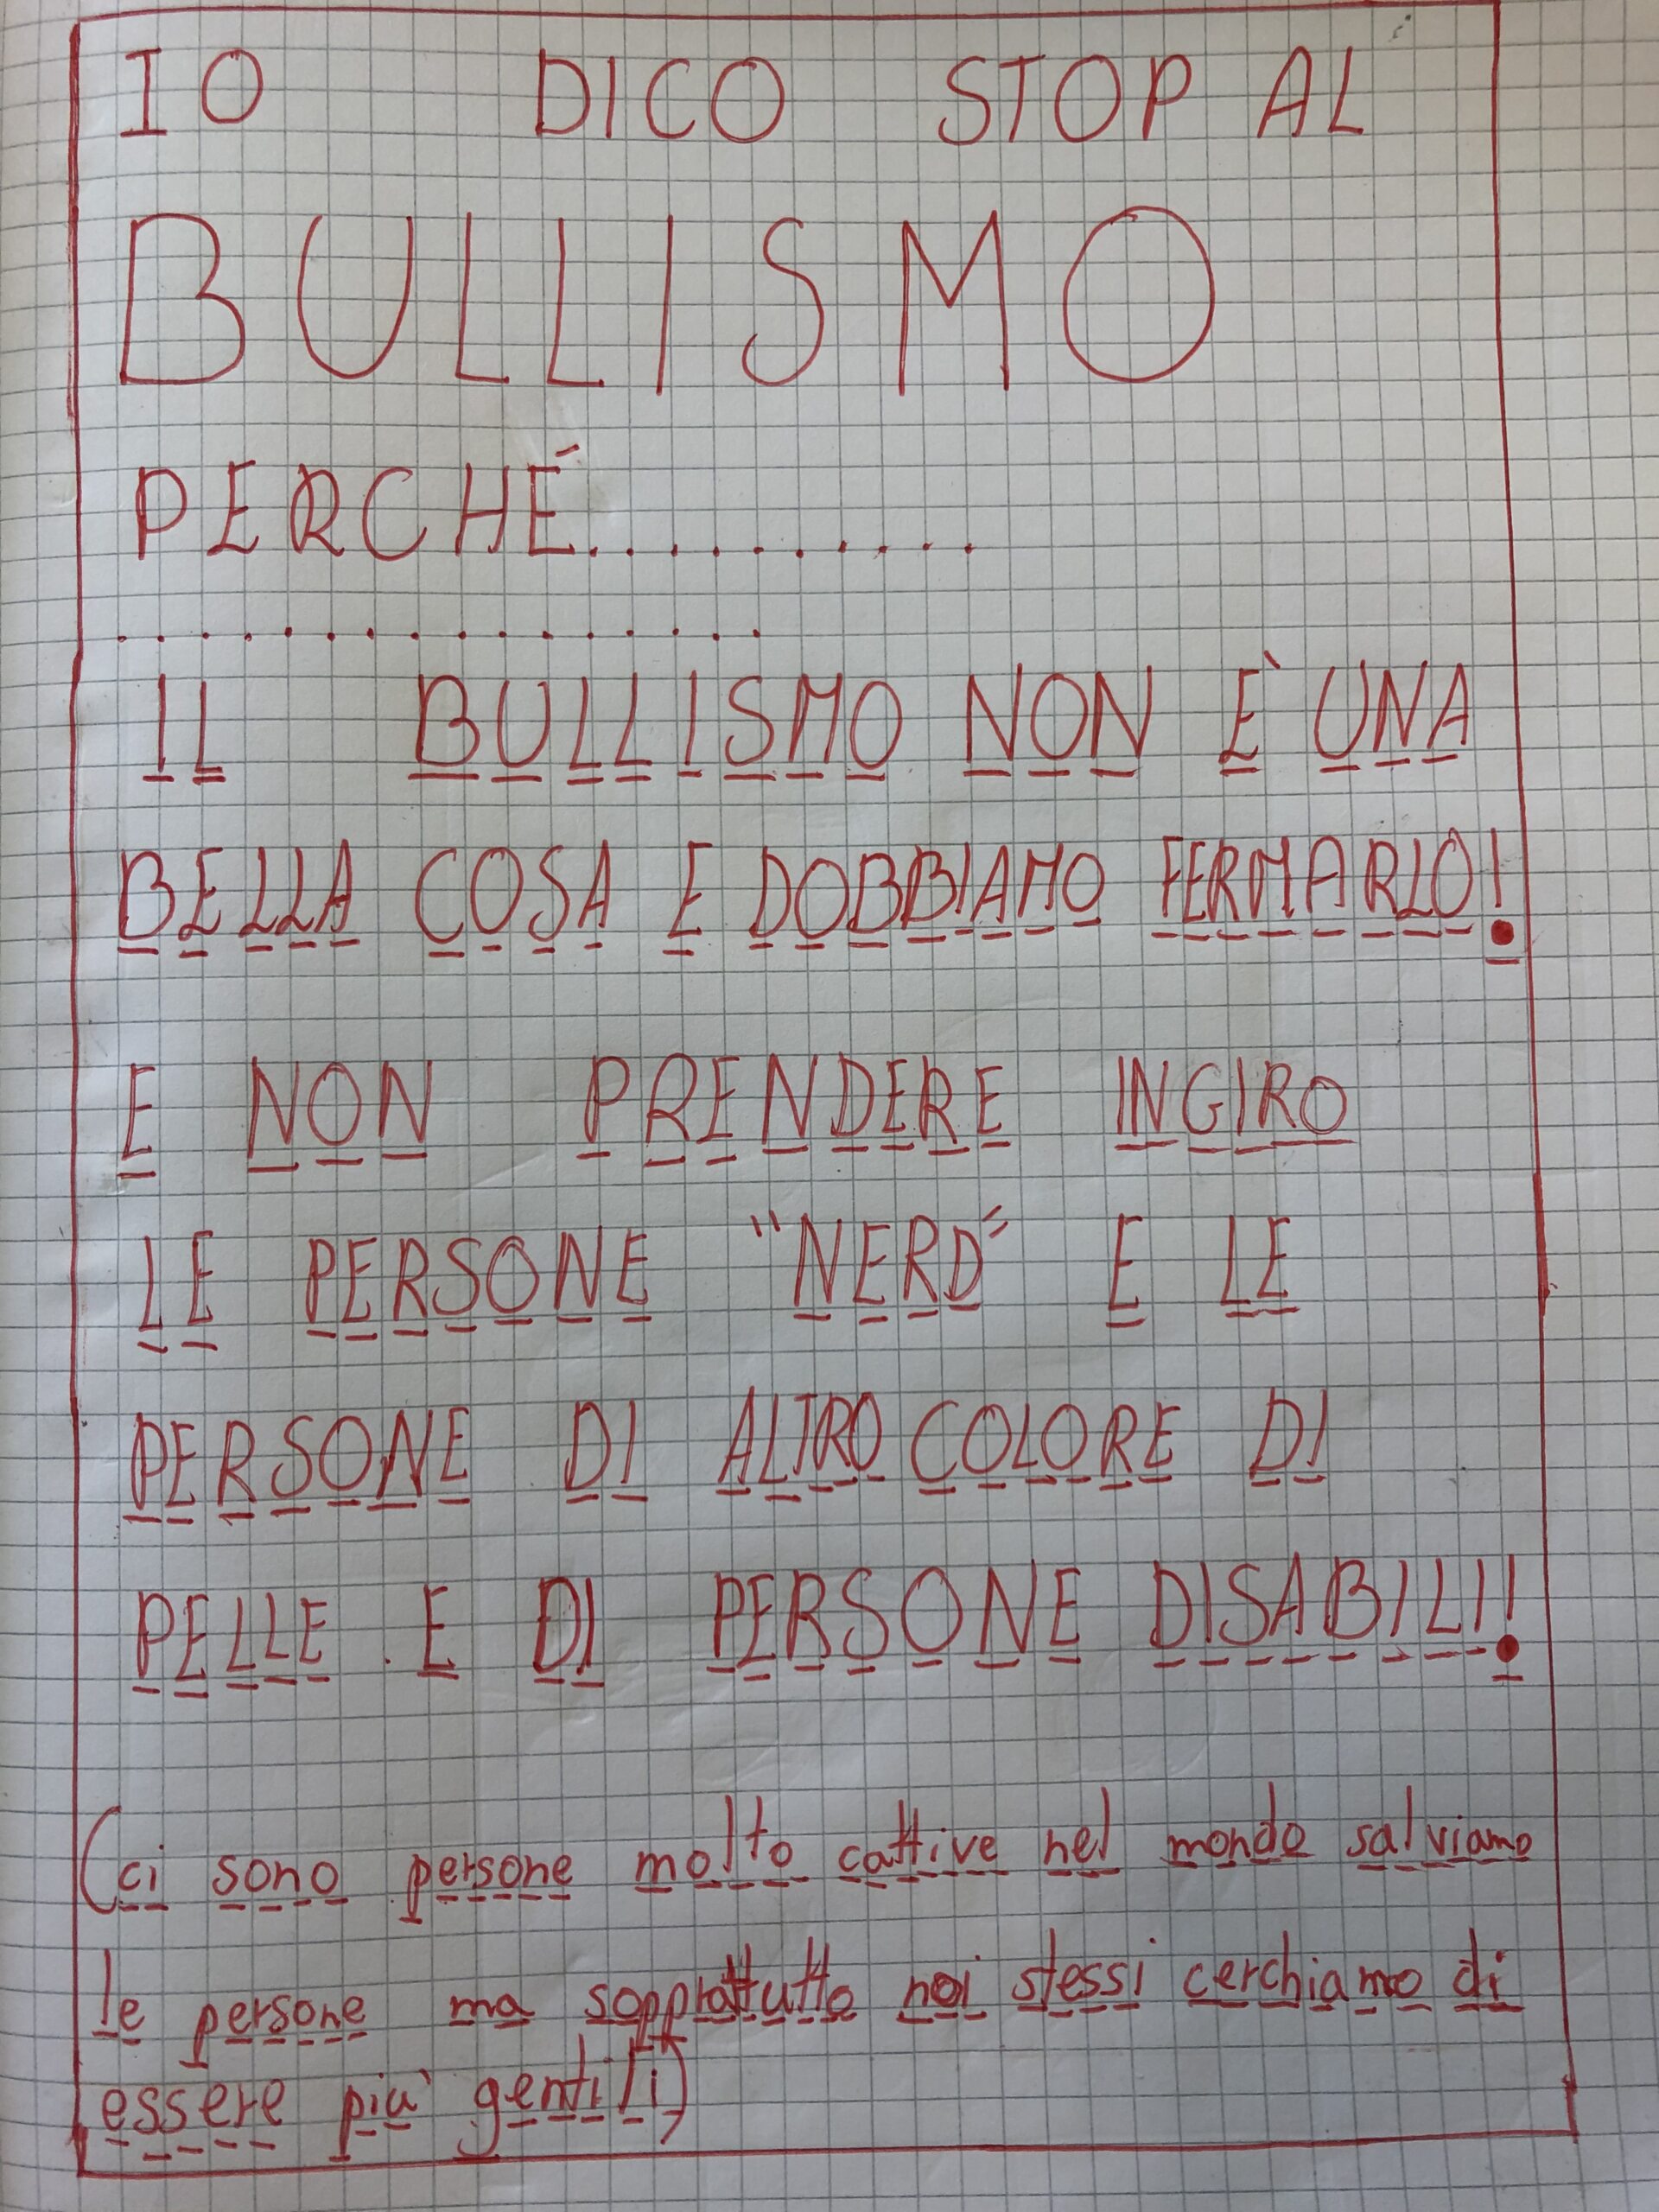 IO DICO STOP AL
BULLISMO
PERCHÉ...........
.................
IL BULLISMO NON È UNA
BELLA COSA E DOBBIAMO FERMARLO!
E NON PRENDERE INGIRO
LE PERSONE "NERD" E LE
PERSONE DI ALTRO COLORE DI
PELLE E DI PERSONE DISABILI!
(ci sono persone molto cattive nel mondo salviamo
le persone ma sopprattutto noi stessi cerchiamo di
essere più gentili)